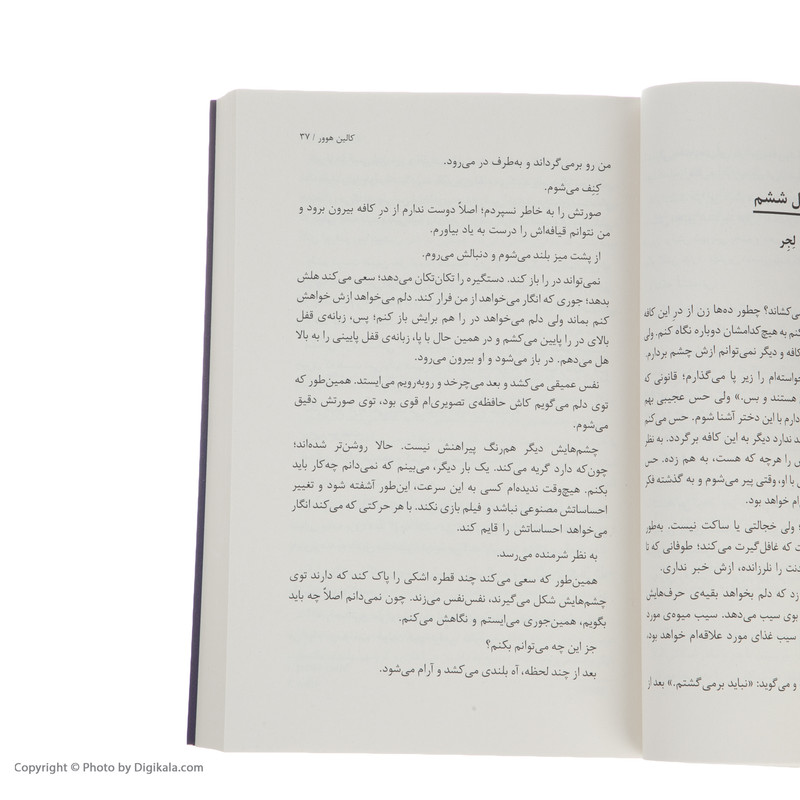 کالین هوور / ۳۷
من رو برمی‌گرداند و به‌طرف در می‌رود.
کِنِف می‌شوم.
صورتش را به خاطر نسپردم؛ اصلاً دوست ندارم از درِ کافه بیرون برود و
من نتوانم قیافه‌اش را درست به یاد بیاورم.
از پشت میز بلند می‌شوم و دنبالش می‌روم.
نمی‌تواند در را باز کند. دستگیره را تکان‌تکان می‌دهد؛ سعی می‌کند هلش
بدهد؛ جوری که انگار می‌خواهد از من فرار کند. دلم می‌خواهد ازش خواهش
کنم بماند ولی دلم می‌خواهد در را هم برایش باز کنم؛ پس، زبانه‌ی قفل
بالای در را پایین می‌کشم و در همین حال با پا، زبانه‌ی قفل پایینی را به بالا
هل می‌دهم. در باز می‌شود و او بیرون می‌رود.
نفس عمیقی می‌کشد و بعد می‌چرخد و روبه‌رویم می‌ایستد. همین‌طور که
توی دلم می‌گویم کاش حافظه‌ی تصویری‌ام قوی بود، توی صورتش دقیق
می‌شوم.
چشم‌هایش دیگر هم‌رنگ پیراهنش نیست. حالا روشن‌تر شده‌اند؛
چون‌که دارد گریه می‌کند. یک بار دیگر، می‌بینم که نمی‌دانم چه‌کار باید
بکنم. هیچ‌وقت ندیده‌ام کسی به این سرعت، این‌طور آشفته شود و تغییر
احساساتش مصنوعی نباشد و فیلم بازی نکند. با هر حرکتی که می‌کند انگار
می‌خواهد احساساتش را قایم کند.
به نظر شرمنده می‌رسد.
همین‌طور که سعی می‌کند چند قطره اشکی را پاک کند که دارند توی
چشم‌هایش شکل می‌گیرند، نفس‌نفس می‌زند. چون نمی‌دانم اصلاً چه باید
بگویم، همین‌جوری می‌ایستم و نگاهش می‌کنم.
جز این چه می‌توانم بکنم؟
بعد از چند لحظه، آه بلندی می‌کشد و آرام می‌شود.
ششم
لِجِر
چطور ده‌ها زن از در این کافه
به هیچ‌کدامشان دوباره نگاه کنم. ولی
کافه و دیگر نمی‌توانم ازش چشم بردارم.
را زیر پا می‌گذارم؛ قانونی که
هستند و بس.» ولی حس عجیبی بهم
دارم با این دختر آشنا شوم. حس می‌کنم
ندارد دیگر به این کافه برگردد. به نظر
را هرچه که هست، به هم زده. حس
با او، وقتی پیر می‌شوم و به گذشته فکر
خواهد بود.
ولی خجالتی یا ساکت نیست. به‌طور
که غافل‌گیرت می‌کند؛ طوفانی که تا
را نلرزانده، ازش خبر نداری.
که دلم بخواهد بقیه‌ی حرف‌هایش
بوی سیب می‌دهد. سیب میوه‌ی مورد
سیب غذای مورد علاقه‌ام خواهد بود.
و می‌گوید: «نباید برمی‌گشتم.» بعد از
Copyright © Photo by Digikala.com